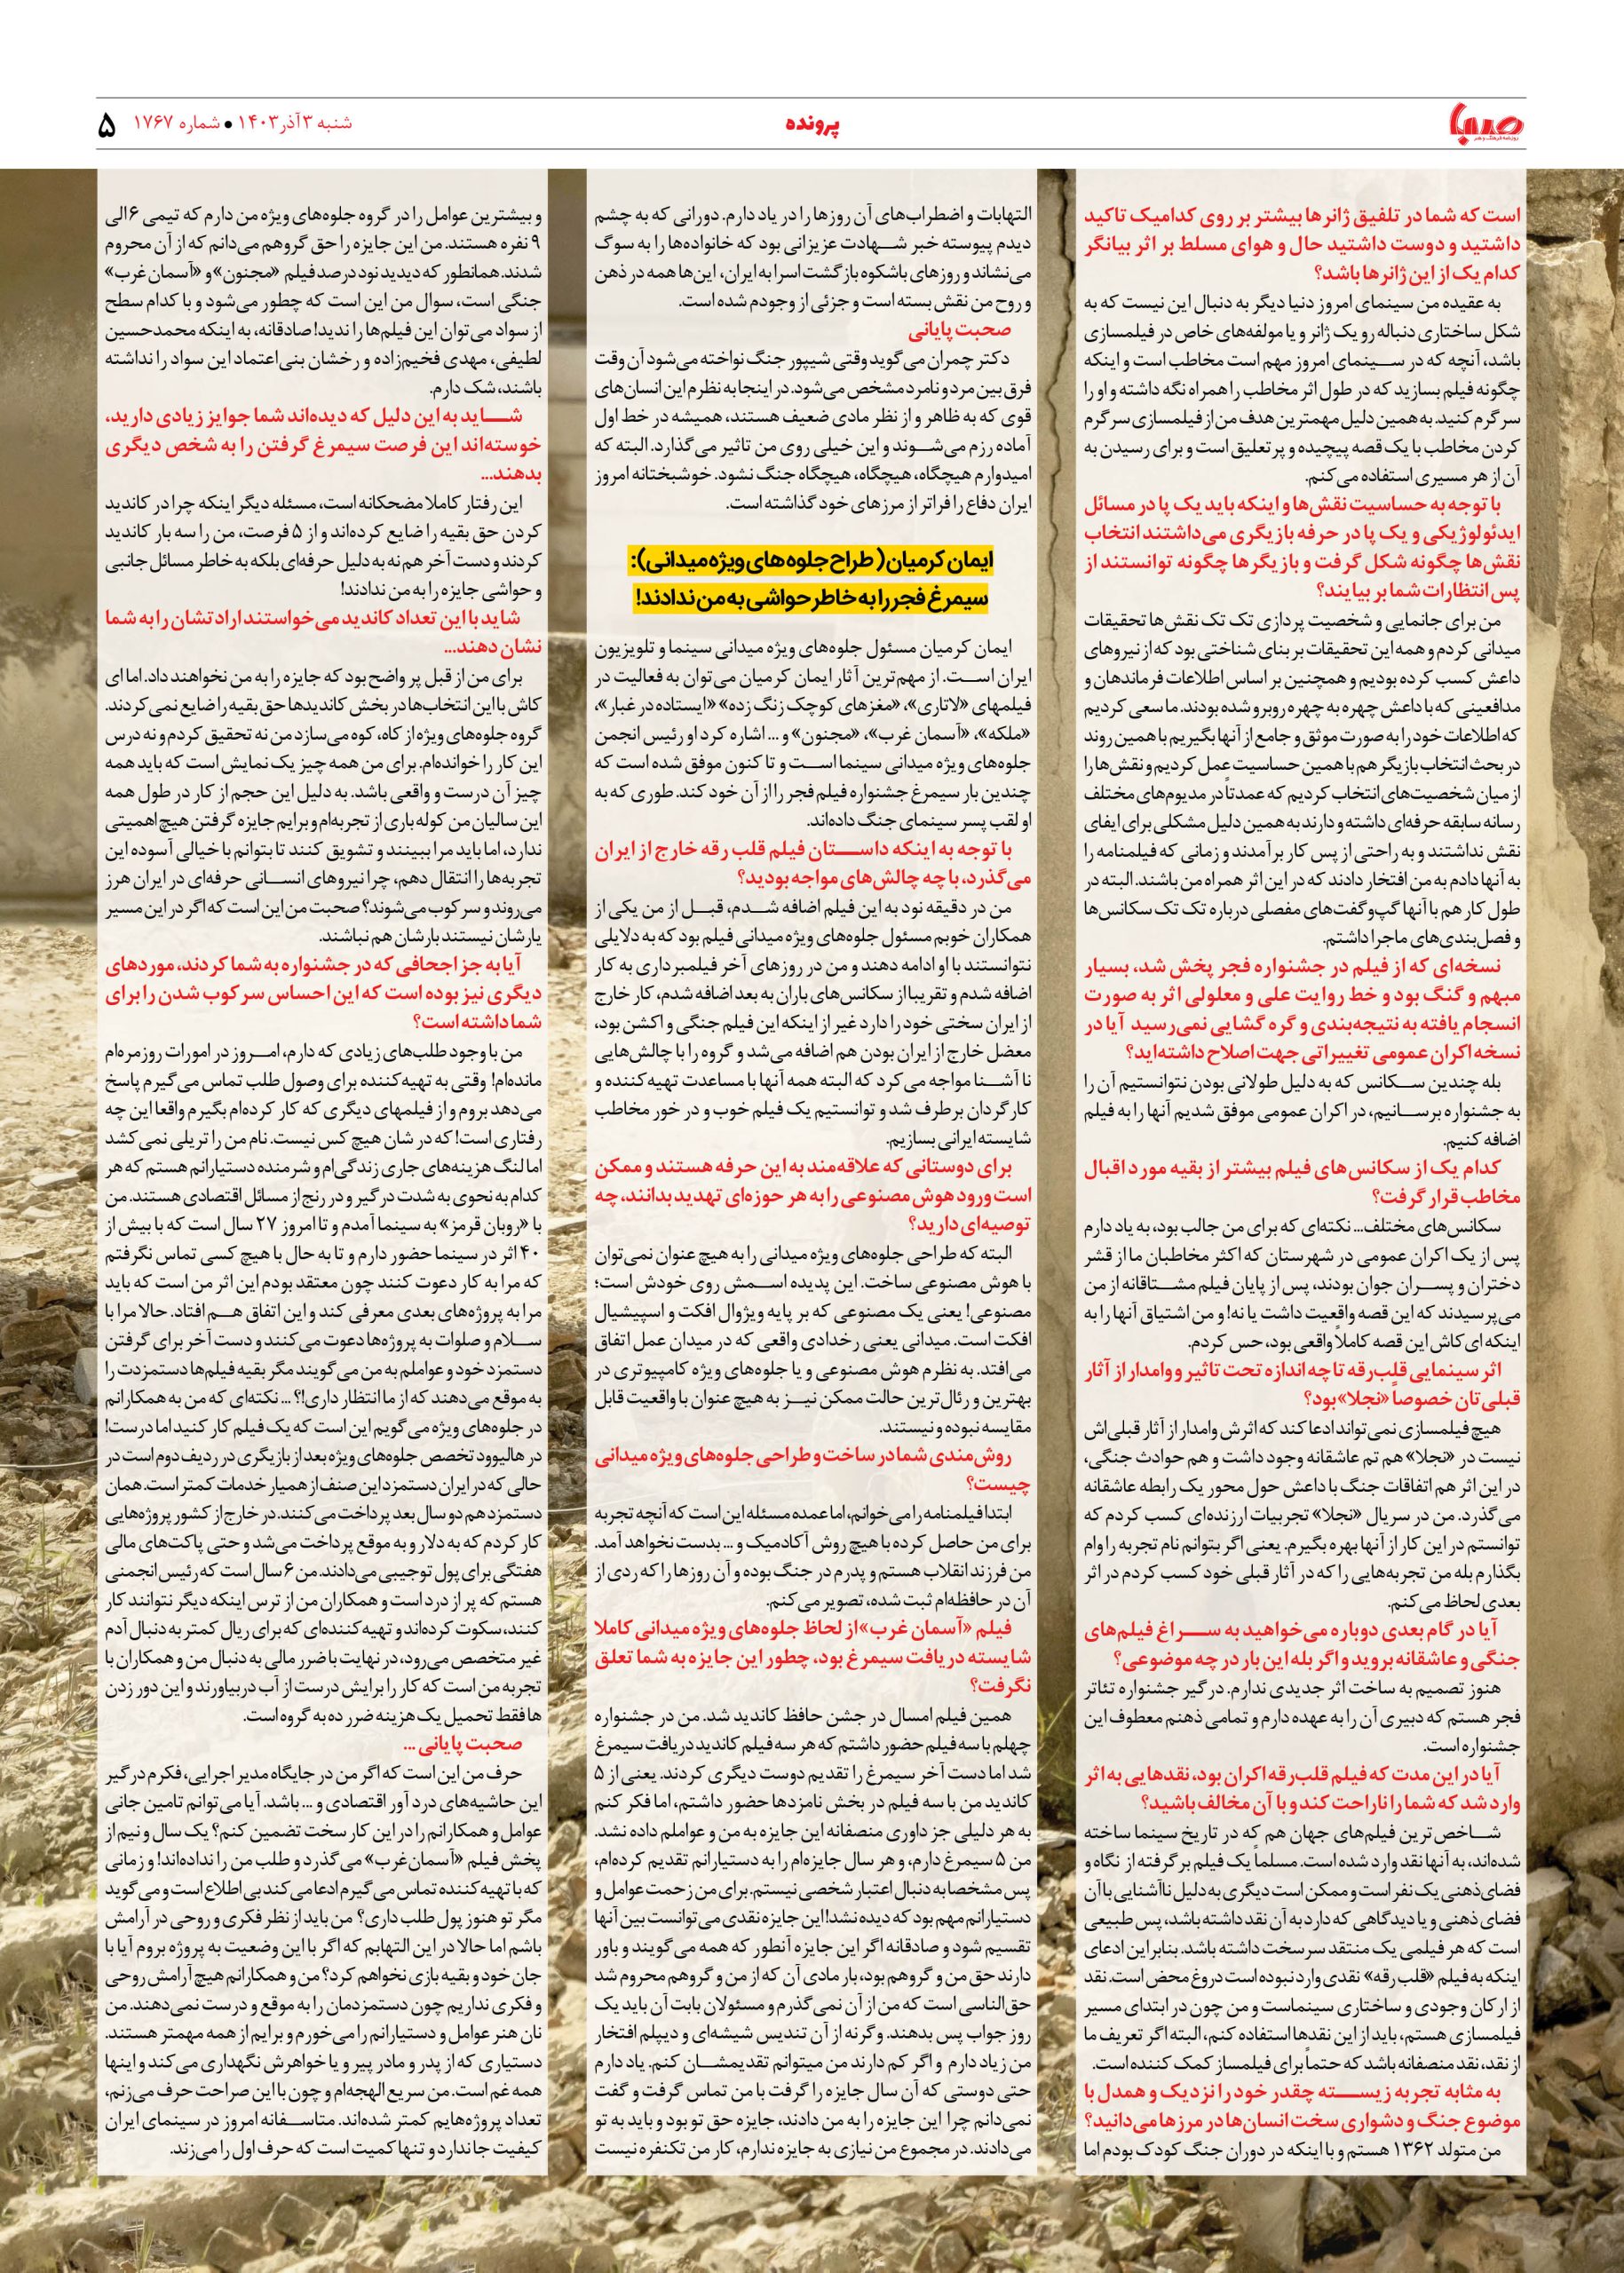 صبا
روزنامه فرهنگ و هنر
پرونده
شنبه ۳ آذر ۱۴۰۳ ● شماره ۱۷۶۷
۵
است که شما در تلفیق ژانرها بیشتر بر روی کدامیک تاکید
داشتید و دوست داشتید حال و هوای مسلط بر اثر بیانگر
کدام یک از این ژانرها باشد؟
به عقیده من سینمای امروز دنیا دیگر به دنبال این نیست که به
شکل ساختاری دنباله رو یک ژانر و یا مولفه‌های خاص در فیلمسازی
باشد، آنچه که در سینمای امروز مهم است مخاطب است و اینکه
چگونه فیلم بسازید که در طول اثر مخاطب را همراه نگه داشته و او را
سرگرم کنید. به همین دلیل مهمترین هدف من از فیلمسازی سرگرم
کردن مخاطب با یک قصه پیچیده و پر تعلیق است و برای رسیدن به
آن از هر مسیری استفاده می‌کنم.
با توجه به حساسیت نقش‌ها و اینکه باید یک پا در مسائل
ایدئولوژیکی و یک پا در حرفه بازیگری می‌داشتند انتخاب
نقش‌ها چگونه شکل گرفت و بازیگرها چگونه توانستند از
پس انتظارات شما بر بیایند؟
من برای جانمایی و شخصیت پردازی تک تک نقش‌ها تحقیقات
میدانی کردم و همه این تحقیقات بر بنای شناختی بود که از نیروهای
داعش کسب کرده بودیم و همچنین بر اساس اطلاعات فرماندهان و
مدافعینی که با داعش چهره به چهره روبرو شده بودند. ما سعی کردیم
که اطلاعات خود را به صورت موثق و جامع از آنها بگیریم با همین روند
در بحث انتخاب بازیگر هم با همین حساسیت عمل کردیم و نقش‌ها را
از میان شخصیت‌های انتخاب کردیم که عمدتاً در مدیوم‌های مختلف
رسانه سابقه حرفه‌ای داشته و دارند به همین دلیل مشکلی برای ایفای
نقش نداشتند و به راحتی از پس کار برآمدند و زمانی که فیلمنامه را
به آنها دادم به من افتخار دادند که در این اثر همراه من باشند. البته در
طول کار هم با آنها گپ‌وگفت‌های مفصلی درباره تک تک سکانس‌ها
و فصل‌بندی‌های ماجرا داشتم.
نسخه‌ای که از فیلم در جشنواره فجر پخش شد، بسیار
مبهم و گنگ بود و خط روایت علی و معلولی اثر به صورت
انسجام یافته به نتیجه‌بندی و گره گشایی نمی‌رسید آیا در
نسخه اکران عمومی تغییراتی جهت اصلاح داشته‌اید؟
بله چندین سکانس که به دلیل طولانی بودن نتوانستیم آن را
به جشنواره برسانیم، در اکران عمومی موفق شدیم آنها را به فیلم
اضافه کنیم.
کدام یک از سکانس‌های فیلم بیشتر از بقیه مورد اقبال
مخاطب قرار گرفت؟
سکانس‌های مختلف... نکته‌ای که برای من جالب بود، به یاد دارم
پس از یک اکران عمومی در شهرستان که اکثر مخاطبان ما از قشر
دختران و پسران جوان بودند، پس از پایان فیلم مشتاقانه از من
می‌پرسیدند که این قصه واقعیت داشت یا نه! و من اشتیاق آنها را به
اینکه ای کاش این قصه کاملاً واقعی بود، حس کردم.
اثر سینمایی قلب‌رقه تا چه اندازه تحت تاثیر و وامدار از آثار
قبلی تان خصوصاً «نجلا» بود؟
هیچ فیلمسازی نمی‌تواند ادعا کند که اثرش وامدار از آثار قبلی‌اش
نیست در «نجلا» هم تم عاشقانه وجود داشت و هم حوادث جنگی،
در این اثر هم اتفاقات جنگ با داعش حول محور یک رابطه عاشقانه
می‌گذرد. من در سریال «نجلا» تجربیات ارزنده‌ای کسب کردم که
توانستم در این کار از آنها بهره بگیرم. یعنی اگر بتوانم نام تجربه را وام
بگذارم بله من تجربه‌هایی را که در آثار قبلی خود کسب کردم در اثر
بعدی لحاظ می‌کنم.
آیا در گام بعدی دوباره می‌خواهید به سراغ فیلم‌های
جنگی و عاشقانه بروید و اگر بله این بار در چه موضوعی؟
هنوز تصمیم به ساخت اثر جدیدی ندارم. درگیر جشنواره تئاتر
فجر هستم که دبیری آن را به عهده دارم و تمامی ذهنم معطوف این
جشنواره است.
آیا در این مدت که فیلم قلب‌رقه اکران بود، نقدهایی به اثر
وارد شد که شما را ناراحت کند و با آن مخالف باشید؟
شاخص ترین فیلم‌های جهان هم که در تاریخ سینما ساخته
شده‌اند، به آنها نقد وارد شده است. مسلماً یک فیلم برگرفته از نگاه و
فضای‌ذهنی یک نفر است و ممکن است دیگری به دلیل ناآشنایی با آن
فضای ذهنی و یا دیدگاهی که دارد به آن نقد داشته باشد، پس طبیعی
است که هر فیلمی یک منتقد سرسخت داشته باشد. بنابراین ادعای
اینکه به فیلم «قلب رقه» نقدی وارد نبوده است دروغ محض است. نقد
از ارکان وجودی و ساختاری سینماست و من چون در ابتدای مسیر
فیلمسازی هستم، باید از این نقدها استفاده کنم، البته اگر تعریف ما
از نقد، نقد منصفانه باشد که حتماً برای فیلمساز کمک کننده است.
به مثابه تجربه زیسته چقدر خود را نزدیک و همدل با
موضوع جنگ و دشواری سخت انسان‌ها در مرزها می‌دانید؟
من متولد ۱۳۶۲ هستم و با اینکه در دوران جنگ کودک بودم اما
التهابات و اضطراب‌های آن روزها را در یاد دارم. دورانی که به چشم
دیدم پیوسته خبر شهادت عزیزانی بود که خانواده‌ها را به سوگ
می‌نشاند و روزهای باشکوه بازگشت اسرا به ایران، این‌ها همه در ذهن
و روح من نقش بسته است و جزئی از وجودم شده است.
صحبت پایانی
دکتر چمران می‌گوید وقتی شیپور جنگ نواخته می‌شود آن وقت
فرق بین مرد و نامرد مشخص می‌شود. در اینجا به نظرم این انسان‌های
قوی که به ظاهر و از نظر مادی ضعیف هستند، همیشه در خط اول
آماده رزم می‌شوند و این خیلی روی من تاثیر می‌گذارد. البته که
امیدوارم هیچگاه، هیچگاه، هیچگاه جنگ نشود. خوشبختانه امروز
ایران دفاع را فراتر از مرزهای خود گذاشته است.
ایمان کرمیان( طراح جلوه‌های ویژه میدانی):
سیمرغ فجر را به خاطر حواشی به من ندادند!
ایمان کرمیان مسئول جلوه‌های ویژه میدانی سینما و تلویزیون
ایران است. از مهم‌ترین آثار ایمان کرمیان می‌توان به فعالیت در
فیلمهای «لاتاری»، «مغزهای کوچک زنگ زده» «ایستاده در غبار»،
«ملکه»، «آسمان غرب»، «مجنون» و ... اشاره کرد او رئیس انجمن
جلوه‌های ویژه میدانی سینما است و تا کنون موفق شده است که
چندین بار سیمرغ جشنواره فیلم فجر را از آن خود کند. طوری که به
او لقب پسر سینمای جنگ داده‌اند.
با توجه به اینکه داستان فیلم قلب رقه خارج از ایران
می‌گذرد، با چه چالش‌های مواجه بودید؟
من در دقیقه نود به این فیلم اضافه شدم، قبل از من یکی از
همکاران خوبم مسئول جلوه‌های ویژه میدانی فیلم بود که به دلایلی
نتوانستند با او ادامه دهند و من در روزهای آخر فیلمبرداری به کار
اضافه شدم و تقریبا از سکانس‌های باران به بعد اضافه شدم، کار خارج
از ایران سختی خود را دارد غیر از اینکه این فیلم جنگی و اکشن بود،
معضل خارج از ایران بودن هم اضافه می‌شد و گروه را با چالش‌هایی
نا آشنا مواجه می‌کرد که البته همه آنها با مساعدت تهیه‌کننده و
کارگردان برطرف شد و توانستیم یک فیلم خوب و در خور مخاطب
شایسته ایرانی بسازیم.
برای دوستانی که علاقه‌مند به این حرفه هستند و ممکن
است ورود هوش مصنوعی را به هر حوزه‌ای تهدید بدانند، چه
توصیه‌ای دارید؟
البته که طراحی جلوه‌های ویژه میدانی را به هیچ عنوان نمی‌توان
با هوش مصنوعی ساخت. این پدیده اسمش روی خودش است؛
مصنوعی! یعنی یک مصنوعی که بر پایه ویژوال افکت و اسپیشیال
افکت است. میدانی یعنی رخدادی واقعی که در میدان عمل اتفاق
می‌افتد. به نظرم هوش مصنوعی و یا جلوه‌های ویژه کامپیوتری در
بهترین و رئال‌ترین حالت ممکن نیز به هیچ عنوان با واقعیت قابل
مقایسه نبوده و نیستند.
روش‌مندی شما در ساخت و طراحی جلوه‌های ویژه میدانی
چیست؟
ابتدا فیلمنامه را می‌خوانم، اما عمده مسئله این است که آنچه تجربه
برای من حاصل کرده با هیچ روش آکادمیک و ... بدست نخواهد آمد.
من فرزند انقلاب هستم و پدرم در جنگ بوده و آن روزها را که ردی از
آن در حافظه‌ام ثبت شده، تصویر می‌کنم.
فیلم «آسمان غرب» از لحاظ جلوه‌های ویژه میدانی کاملا
شایسته دریافت سیمرغ بود، چطور این جایزه به شما تعلق
نگرفت؟
همین فیلم امسال در جشن حافظ کاندید شد. من در جشنواره
چهلم با سه فیلم حضور داشتم که هر سه فیلم کاندید دریافت سیمرغ
شد اما دست آخر سیمرغ را تقدیم دوست دیگری کردند. یعنی از ۵
کاندید من با سه فیلم در بخش نامزدها حضور داشتم، اما فکر کنم
به هر دلیلی جز داوری منصفانه این جایزه به من و عواملم داده نشد.
من ۵ سیمرغ دارم، و هر سال جایزه‌ام را به دستیارانم تقدیم کرده‌ام،
پس مشخصا به دنبال اعتبار شخصی نیستم. برای من زحمت عوامل و
دستیارانم مهم بود که دیده نشد! این جایزه نقدی می‌توانست بین آنها
تقسیم شود و صادقانه اگر این جایزه آنطور که همه می‌گویند و باور
دارند حق من و گروهم بود، بار مادی آن که از من و گروهم محروم شد
حق‌الناسی است که من از آن نمی‌گذرم و مسئولان بابت آن باید یک
روز جواب پس بدهند. وگرنه از آن تندیس شیشه‌ای و دیپلم افتخار
من زیاد دارم و اگر کم دارند من میتوانم تقدیمشان کنم. یاد دارم
حتی دوستی که آن سال جایزه را گرفت با من تماس گرفت و گفت
نمی‌دانم چرا این جایزه را به من دادند، جایزه حق تو بود و باید به تو
می‌دادند. در مجموع من نیازی به جایزه ندارم، کار من تکنفره نیست
و بیشترین عوامل را در گروه جلوه‌های ویژه من دارم که تیمی ۶ الی
۹ نفره هستند. من این جایزه را حق گروهم می‌دانم که از آن محروم
شدند. همانطور که دیدید نود درصد فیلم «مجنون» و «آسمان غرب»
جنگی است، سوال من این است که چطور می‌شود و با کدام سطح
از سواد می‌توان این فیلم‌ها را ندید! صادقانه، به اینکه محمدحسین
لطیفی، مهدی فخیم‌زاده و رخشان بنی‌اعتماد این سواد را نداشته
باشند، شک دارم.
شاید به این دلیل که دیده‌اند شما جوایز زیادی دارید،
خوسته‌اند این فرصت سیمرغ گرفتن را به شخص دیگری
بدهند...
این رفتار کاملا مضحکانه است، مسئله دیگر اینکه چرا در کاندید
کردن حق بقیه را ضایع کرده‌اند و از ۵ فرصت، من را سه بار کاندید
کردند و دست آخر هم نه به دلیل حرفه‌ای بلکه به خاطر مسائل جانبی
و حواشی جایزه را به من ندادند!
شاید با این تعداد کاندید می‌خواستند ارادتشان را به شما
نشان دهند...
برای من از قبل پر واضح بود که جایزه را به من نخواهند داد. اما ای
کاش با این انتخاب‌ها در بخش کاندیدها حق بقیه را ضایع نمی‌کردند.
گروه جلوه‌های ویژه از کاه، کوه می‌سازد من نه تحقیق کردم و نه درس
این کار را خوانده‌ام. برای من همه چیز یک نمایش است که باید همه
چیز آن درست و واقعی باشد. به دلیل این حجم از کار در طول همه
این سالیان من کوله باری از تجربه‌ام و برایم جایزه گرفتن هیچ اهمیتی
ندارد، اما باید مرا ببینند و تشویق کنند تا بتوانم با خیالی آسوده این
تجربه‌ها را انتقال دهم، چرا نیروهای انسانی حرفه‌ای در ایران هرز
می‌روند و سرکوب می‌شوند؟ صحبت من این است که اگر در این مسیر
یارشان نیستند بارشان هم نباشند.
آیا به جز اجحافی که در جشنواره به شما کردند، موردهای
دیگری نیز بوده است که این احساس سرکوب شدن را برای
شما داشته است؟
من با وجود طلب‌های زیادی که دارم، امروز در امورات روزمره‌ام
مانده‌ام! وقتی به تهیه‌کننده برای وصول طلب تماس می‌گیرم پاسخ
می‌دهد بروم و از فیلمهای دیگری که کار کرده‌ام بگیرم واقعا این چه
رفتاری است! که در شان هیچ کس نیست. نام من را تریلی نمی‌کشد
اما لنگ هزینه‌های جاری زندگی‌ام و شرمنده دستیارانم هستم که هر
کدام به نحوی به شدت درگیر و در رنج از مسائل اقتصادی هستند. من
با «روبان قرمز» به سینما آمدم و تا امروز ۲۷ سال است که با بیش از
۴۰ اثر در سینما حضور دارم و تا به حال با هیچ کسی تماس نگرفتم
که مرا به کار دعوت کنند چون معتقد بودم این اثر من است که باید
مرا به پروژه‌های بعدی معرفی کند و این اتفاق هم افتاد. حالا مرا با
سلام و صلوات به پروژه‌ها دعوت می‌کنند و دست آخر برای گرفتن
دستمزد خود و عواملم به من می‌گویند مگر بقیه فیلم‌ها دستمزدت را
به موقع می‌دهند که از ما انتظار داری؟! ... نکته‌ای که من به همکارانم
در جلوه‌های ویژه می‌گویم این است که یک فیلم کار کنید اما درست!
در هالیوود تخصص جلوه‌های ویژه بعد از بازیگری در ردیف دوم است در
حالی که در ایران دستمزد این صنف از همیار خدمات کمتر است. همان
دستمزد هم دو سال بعد پرداخت می‌کنند. در خارج از کشور پروژه‌هایی
کار کردم که به دلار و به موقع پرداخت می‌شد و حتی پاکت‌های مالی
هفتگی برای پول توجیبی می‌دادند. من ۶ سال است که رئیس انجمنی
هستم که پر از درد است و همکاران من از ترس اینکه دیگر نتوانند کار
کنند، سکوت کرده‌اند و تهیه‌کننده‌ای که برای ریال کمتر به دنبال آدم
غیر متخصص می‌رود، در نهایت با ضرر مالی به دنبال من و همکاران با
تجربه من است که کار را برایش درست از آب دربیاورند و این دور زدن
ها فقط تحمیل یک هزینه ضرر ده به گروه است.
صحبت پایانی ...
حرف من این است که اگر من در جایگاه مدیر اجرایی، فکرم درگیر
این حاشیه‌های درد آور اقتصادی و ... باشد. آیا می‌توانم تامین جانی
عوامل و همکارانم را در این کار سخت تضمین کنم؟ یک سال و نیم از
پخش فیلم «آسمان‌غرب» می‌گذرد و طلب من را نداده‌اند! و زمانی
که با تهیه کننده تماس می‌گیرم ادعا می‌کند بی‌اطلاع است و می‌گوید
مگر تو هنوز پول طلب داری؟ من باید از نظر فکری و روحی در آرامش
باشم اما حالا در این التهابم که اگر با این وضعیت به پروژه بروم آیا با
جان خود و بقیه بازی نخواهم کرد؟ من و همکارانم هیچ آرامش روحی
و فکری نداریم چون دستمزدمان را به موقع و درست نمی‌دهند. من
نان هنر عوامل و دستیارانم را می‌خورم و برایم از همه مهمتر هستند.
دستیاری که از پدر و مادر پیر و یا خواهرش نگهداری می‌کند و اینها
همه غم است. من سریع الهجه‌ام و چون با این صراحت حرف می‌زنم،
تعداد پروژه‌هایم کمتر شده‌اند. متاسفانه امروز در سینمای ایران
کیفیت جا ندارد و تنها کمیت است که حرف اول را می‌زند.